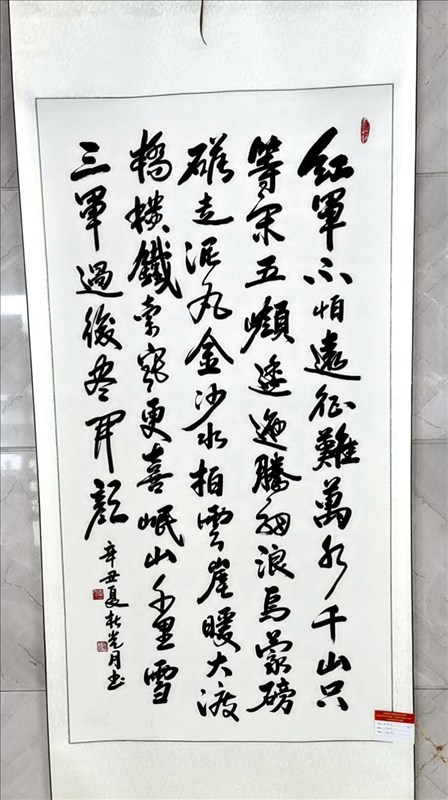 紅軍不怕遠征難萬水千山只
等閑五嶺逶迤騰細浪烏蒙磅
礴走泥丸金沙水拍雲崖暖大渡
橋橫鐵索寒更喜岷山千里雪
三軍過後盡開顏
辛丑夏光月书